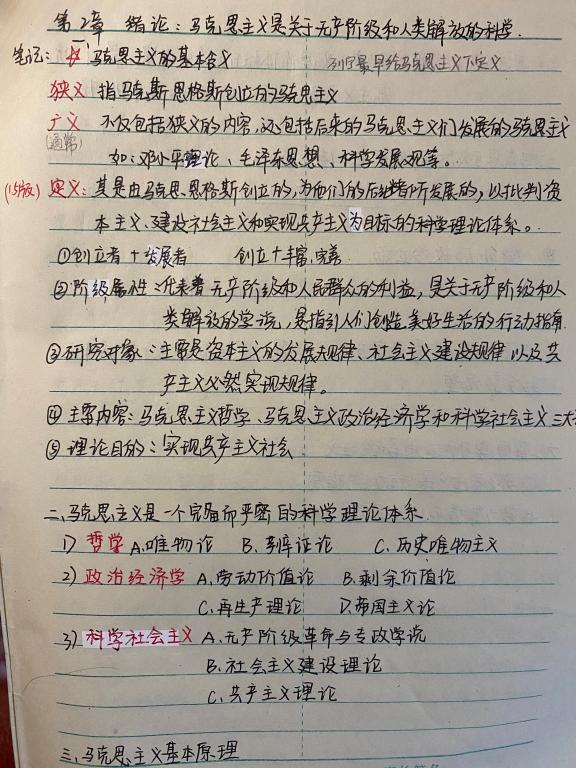 第2章 绪论：马克思主义是关于无产阶级和人类解放的科学.
笔记：☆ 马克思主义的基本含义 列宁最早给马克思主义下定义
狭义 指马克斯恩格斯创立的马克思主义
广义 不仅包括狭义的内容，还包括后来的马克思主义们发展的马克思主义
(通常) 如：邓小平理论、毛泽东思想、科学发展观等。
(15版) 定义：其是由马克思.恩格斯创立的，为他们的后继者所发展的，以批判资
本主义、建设社会主义和实现共产主义为目标的科学理论体系。
①创立者＋发展者 创立＋丰富.完善
②阶级属性：代表着无产阶级和人民群众的利益，是关于无产阶级和人
类解放的学说，是指引人们创造美好生活的行动指南
③研究对象：主要是资本主义的发展规律、社会主义建设规律以及共
产主义必然实现规律。
④主要内容：马克思主义哲学、马克思主义政治经济学和科学社会主义三大
⑤理论目的：实现共产主义社会
二、马克思主义是一个完备而严密的科学理论体系
1) 哲学 A.唯物论 B.辩证论 C.历史唯物主义
2) 政治经济学 A.劳动价值论 B.剩余价值论
C.再生产理论 D.帝国主义论
3) 科学社会主义 A.无产阶级革命与专政学说
B.社会主义建设理论
C.共产主义理论
三、马克思主义基本原理